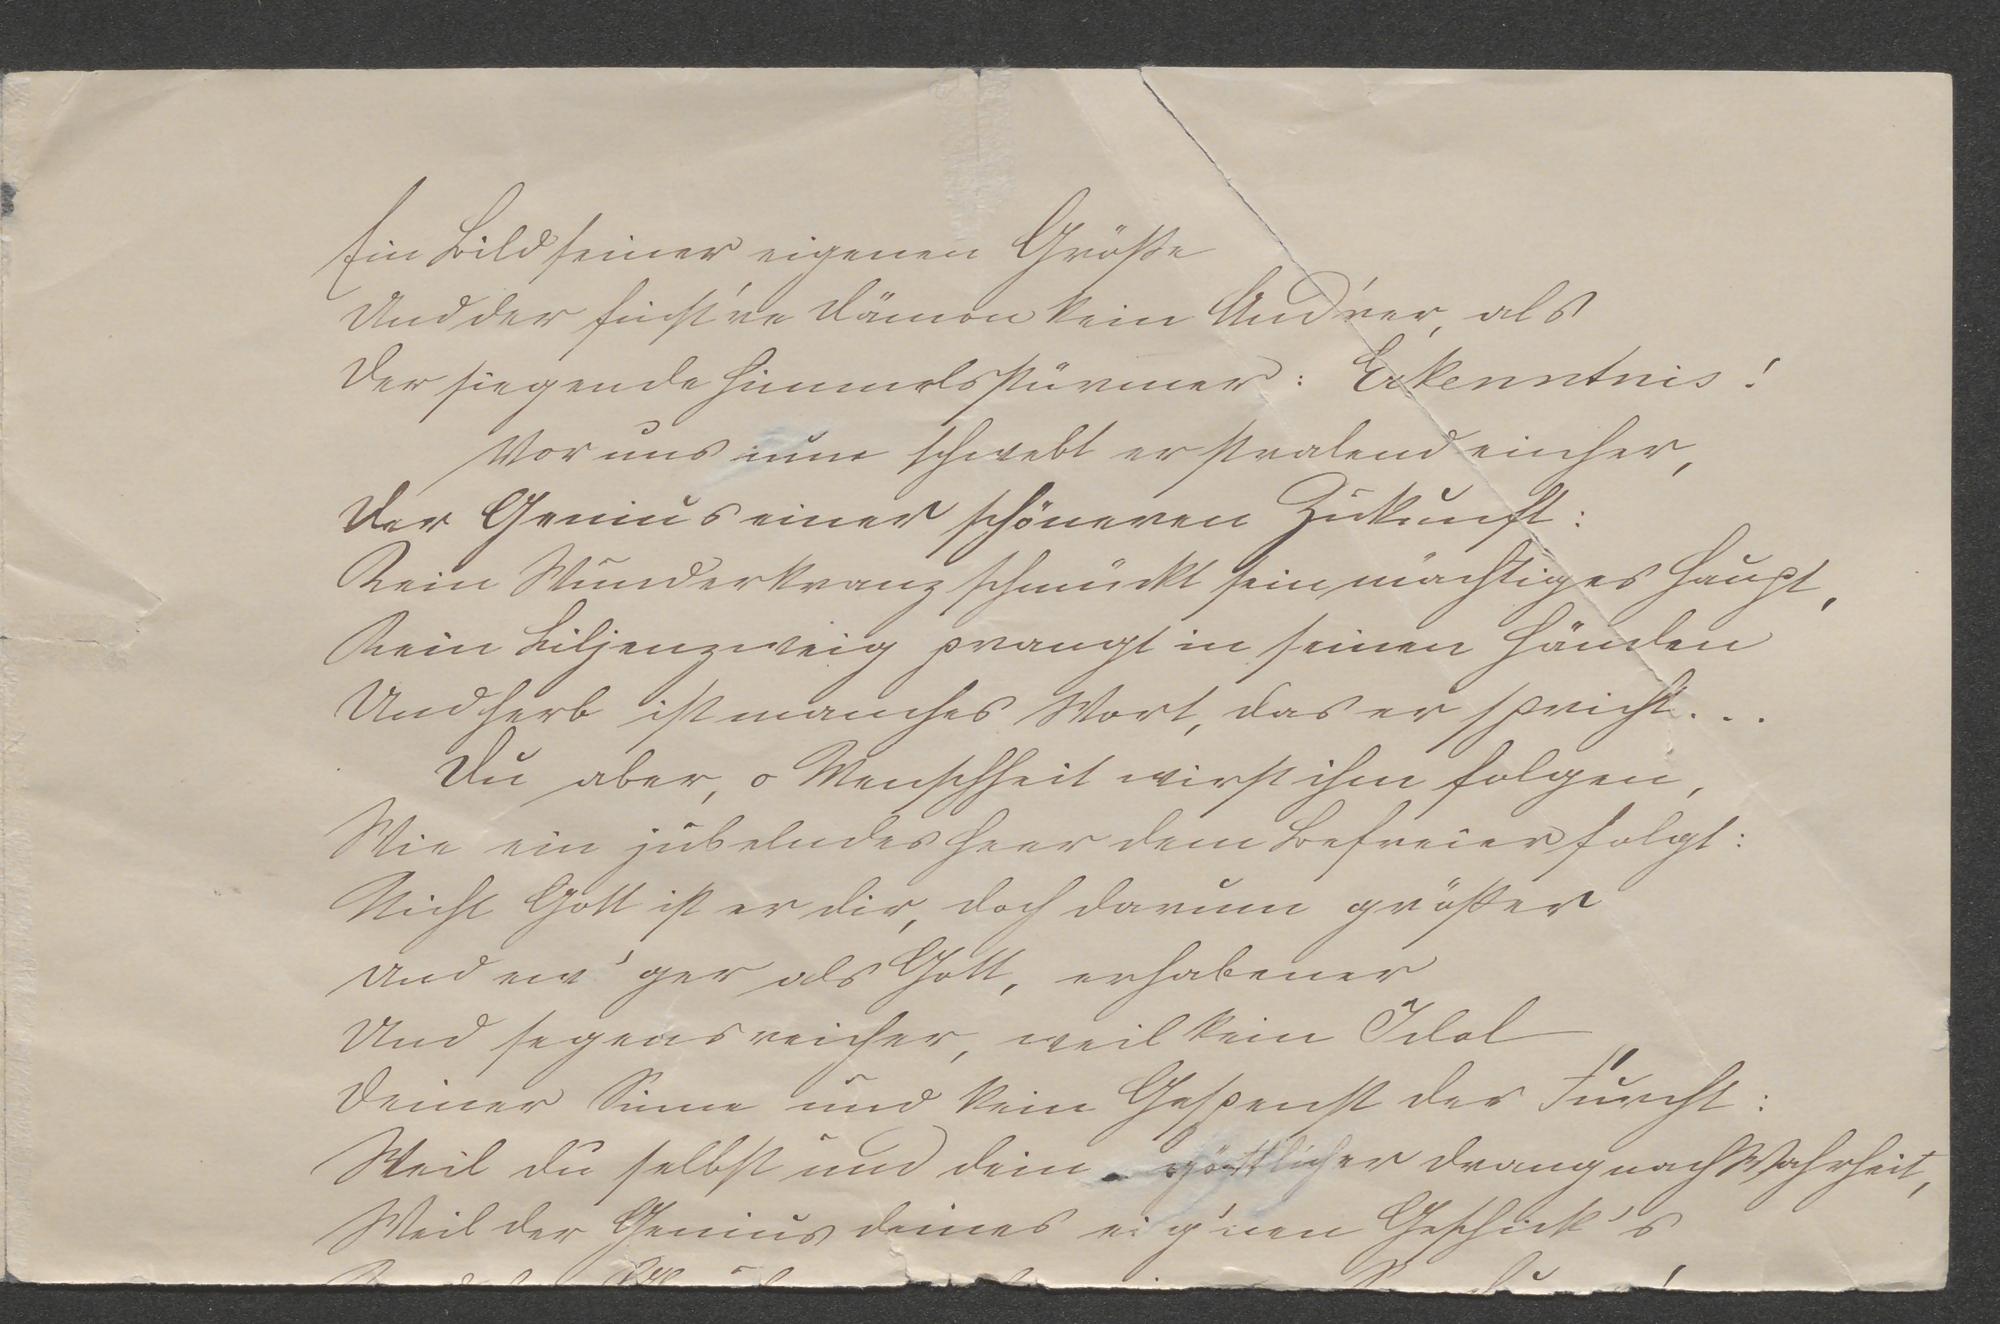 Ein Bild seiner eigenen Größe
Und der finst're Dämon kein And'rer, als
Der siegende Himmelsstürmer: Erkenntnis!
Vor uns nun schwebt er stralend einher,
Der Genius einer schöneren Zukunft:
Kein Wunderkranz schmückt sein mächtiges Haupt,
Kein Liljenzweig prangt in seinen Händen
Und herb ist manches Wort, das er spricht...
Du aber, o Menschheit wirst ihm folgen,
Wie ein jubelndes Heer dem Befreier folgt:
Nicht Gott ist er dir, doch darum größer
Und ew'ger als Gott, erhabener
Und segensreicher, weil kein Idol
Deiner Sinne und kein Gespenst der Furcht:
Weil du selbst und dein göttlicher Drang nach Wahrheit,
Weil der Genius deines eig'nen Geschick's